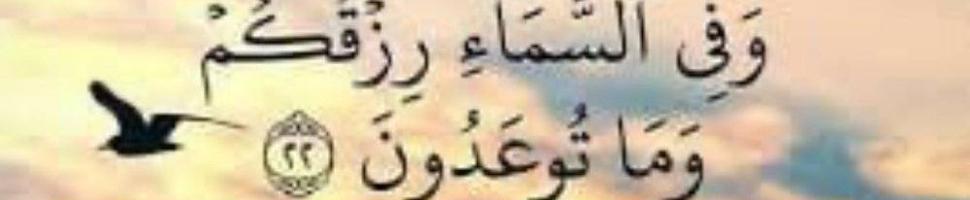 وَفِي السَّمَاءِ رِزْقُكُمْ
وَمَا تُوعَدُونَ ٢٢